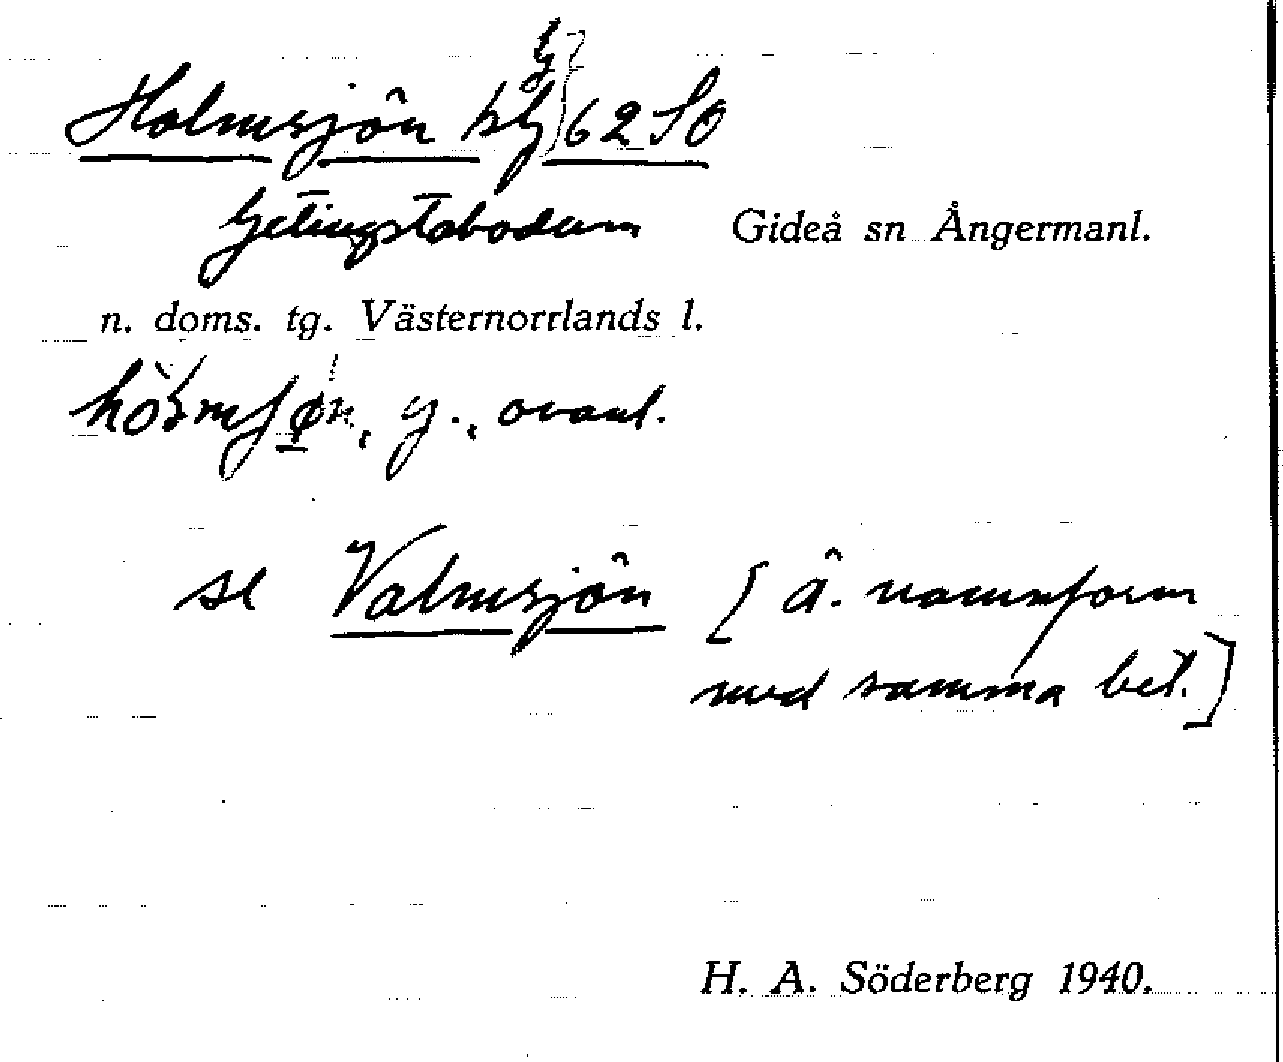 Holmsjön blg 62 SO
Getingstabodum Gideå sn Ångermanl.
n. doms. tg. Västernorrlands l.
y., ovanl.
se Valmsjön [ å. namnform
med samma bet.]
H. A. Söderberg 1940.